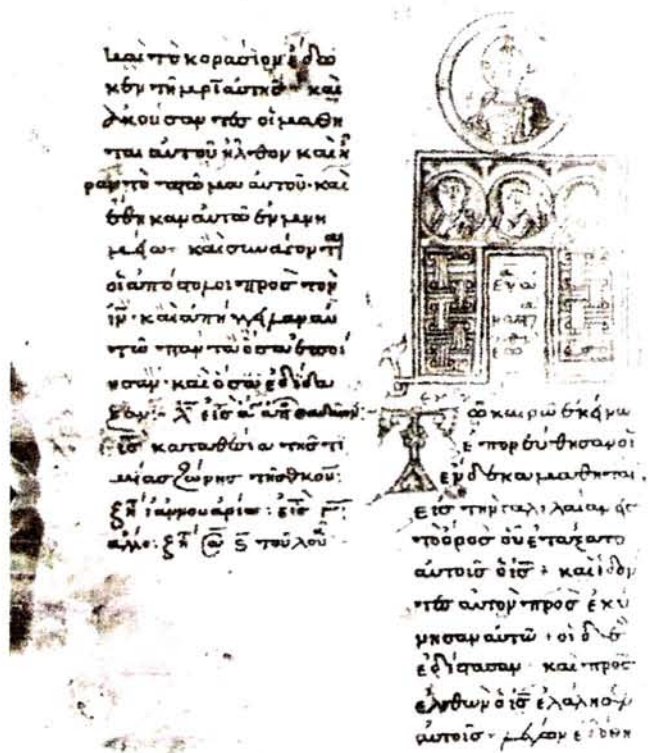 και το κορασιον ἔδω
κεν τῆ μρ̅ι αυτης · και
ἀκούσαντες οἱ μαθη
ται ἀυτοῦ ἦλθον και ἦ
ραν το πτῶμα αυτοῦ · και
ἔθηκαν αυτὸ ἐν μνη
μείω · και συνάγονται
οἱ ἀπόστολοι προς τον
ι̅ν̅ · και ἀπήγγειλαν αυ
τῶ παντα ὅσα ἐποί
ησαν · και ὅσα ἐδίδα
ξαν
κατα
τῆς τι
μίας ζώνης τῆς θκου :
ἰαννουαρίω : εἰς
ἄλλο : τοῦ λου
Τῶ καιρῶ ἐκείνω
ἐπορεύθησαν οἱ
ἕνδεκα μαθηται
εἰς την γαλιλαίαν εἰς
το ὄρος οὗ ἐτάξατο
αυτοῖς ὁ ι̅ς̅ · και ἰδόν
τες αυτον προσεκύ
νησαν αυτῶ · οἱ δὲ
ἐδίστασαν · και προσ
ελθὼν ὁ ι̅ς̅ ἐλάλησεν
αυτοῖς · λέγων ἐδόθη